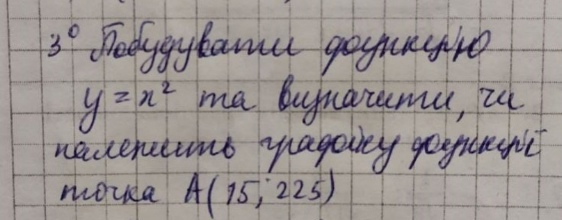 3° Побудувати функцію
y = x² та визначити, чи
належить графіку функції
точка A(15; 225)